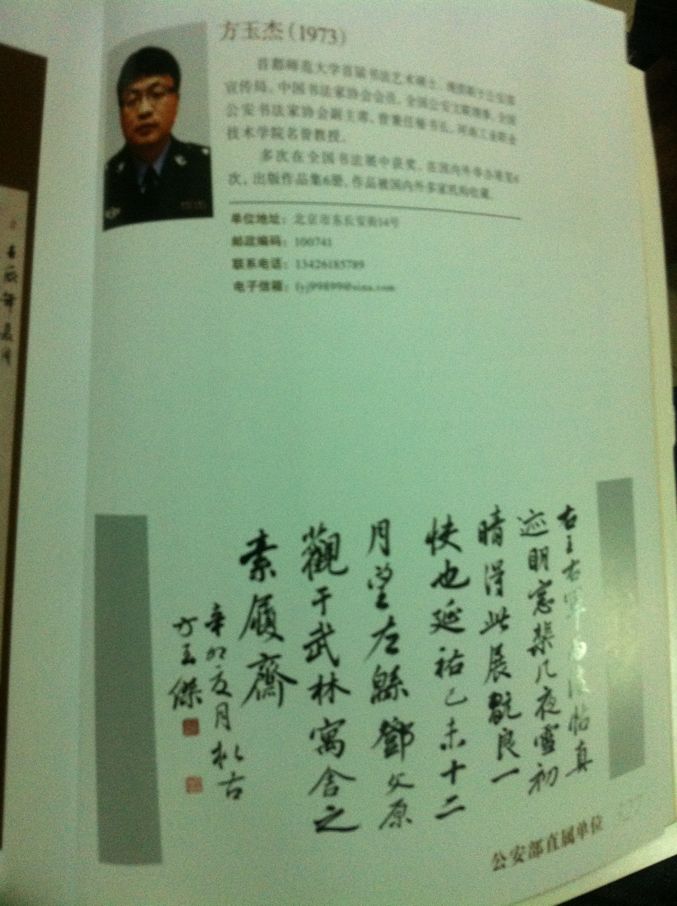 方玉杰(1973)
首都师范大学首届书法艺术硕士。现供职于公安部
宣传局。中国书法家协会会员、全国公安文联理事、全国
公安书法家协会副主席,曾兼任秘书长。河南工业职业
技术学院名誉教授。
多次在全国书法展中获奖,在国内外举办展览6
次,出版作品集6册。作品被国内外多家机构收藏。
单位地址:北京市东长安街14号
邮政编码:100741
联系电话:13426185789
电子信箱:fyj99899@sina.com
右王右军 帖真
迹明窗棐几夜雪初
晴得此展翫良一
快也延祐己未十二
月望左绵鄧文原
觀于武林寓舍之
素履齋
辛卯夏月 古
方玉傑
公安部直属单位